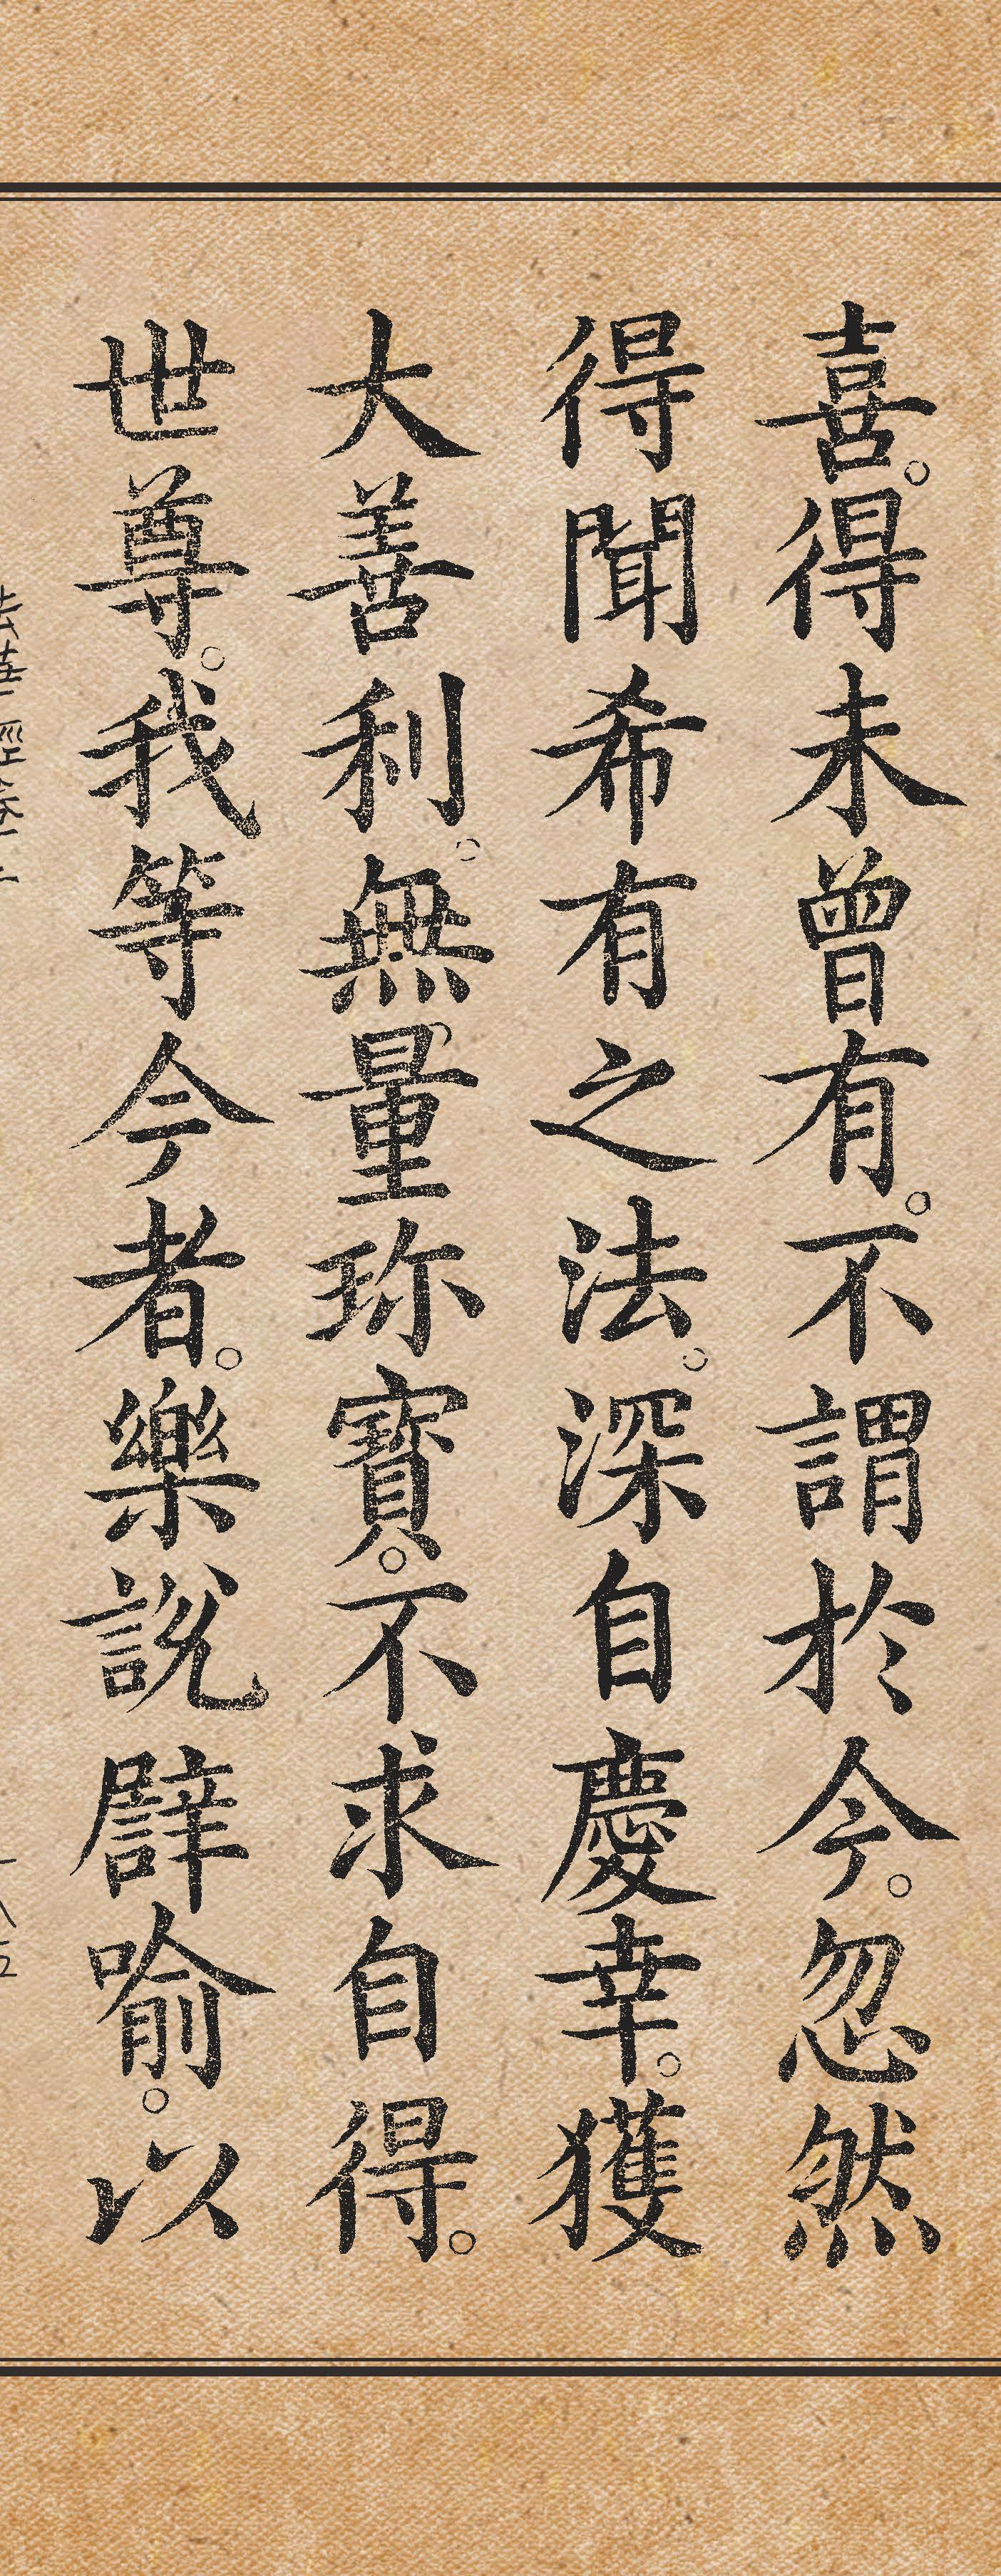 喜。得未曾有。不謂於今。忽然
得聞希有之法。深自慶幸。獲
大善利。無量珎寶。不求自得。
世尊。我等今者。樂說譬喻。以